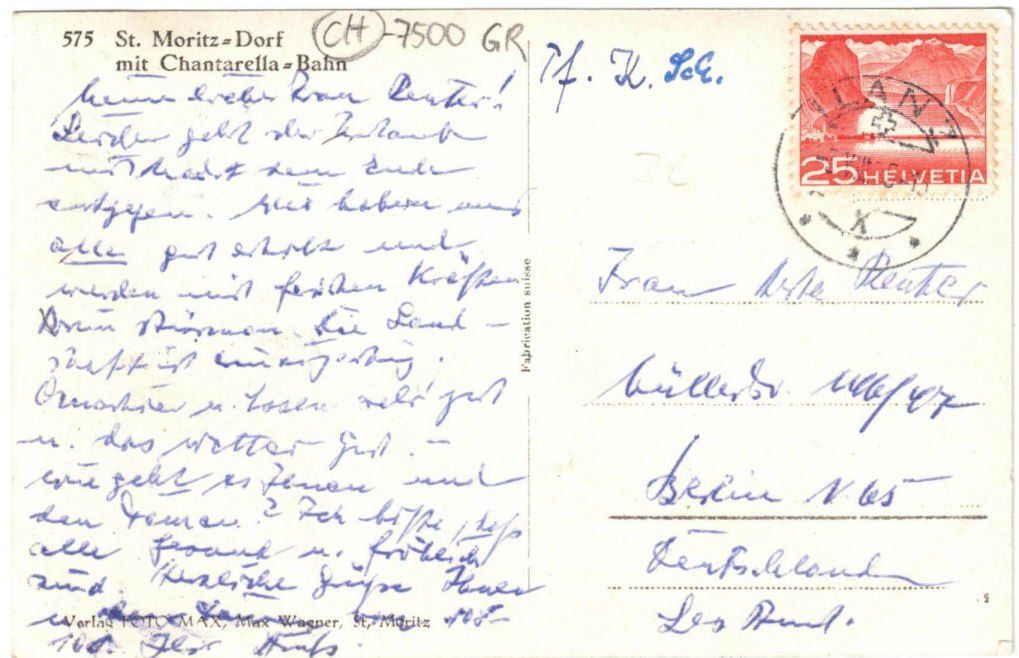 575 St. Moritz=Dorf
mit Chantarella=Bahn
CH-7500 GR
Meine liebe Frau Reuter!
Leider geht der Urlaub
mit Macht dem Ende
entgegen. Wir haben uns
alle gut erholt und
werden mit frischen Kräften
stürmen. Die Land-
schaft ist einzigartig.
Quartier u. Essen sehr gut
u. das Wetter gut. –
Wie geht es Ihnen und
den Damen? Ich hoffe, daß
alle gesund u. fröhlich
sind. Herzliche Grüße Ihnen
u. den
Ihr
Verlag FOTO MAX, Max Wagner, St. Moritz
Fabrication suisse
Pf. K. Sch.
25 HELVETIA
ILANZ
Frau Reuter
Müllerstr. 146/47
Berlin N 65
Deutschland